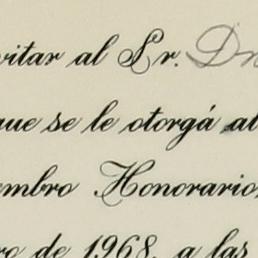 vitar al Sr. Dn
que se le otorgá al
embro Honorario,
ro de 1968, a las